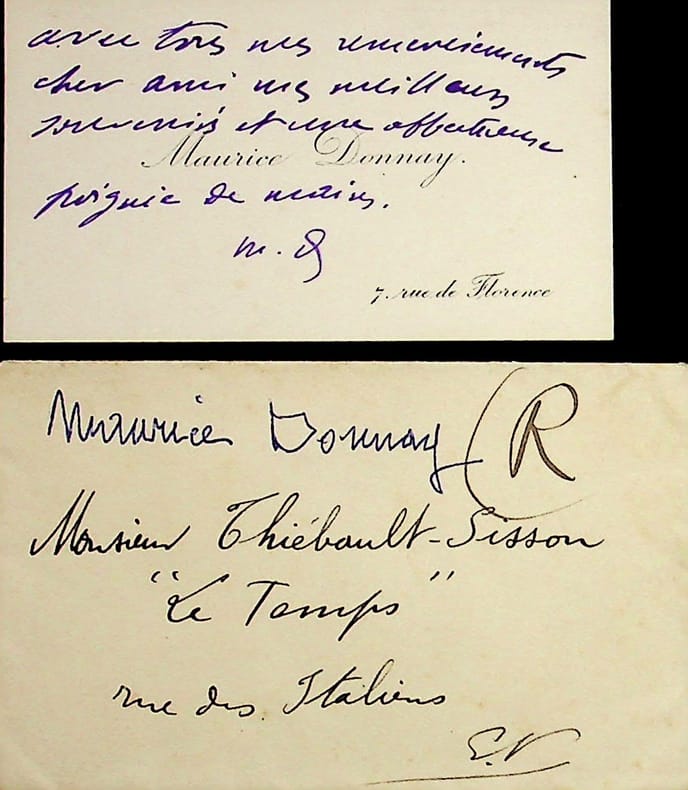 avec tous mes remerciements
cher ami mes meilleurs
souvenirs et une affectueuse
Maurice Donnay.
poignée de mains.
M. D
7. rue de Florence
Maurice Donnay
R
Monsieur Thiébault-Sisson
"Le Temps"
rue des Italiens
E.V